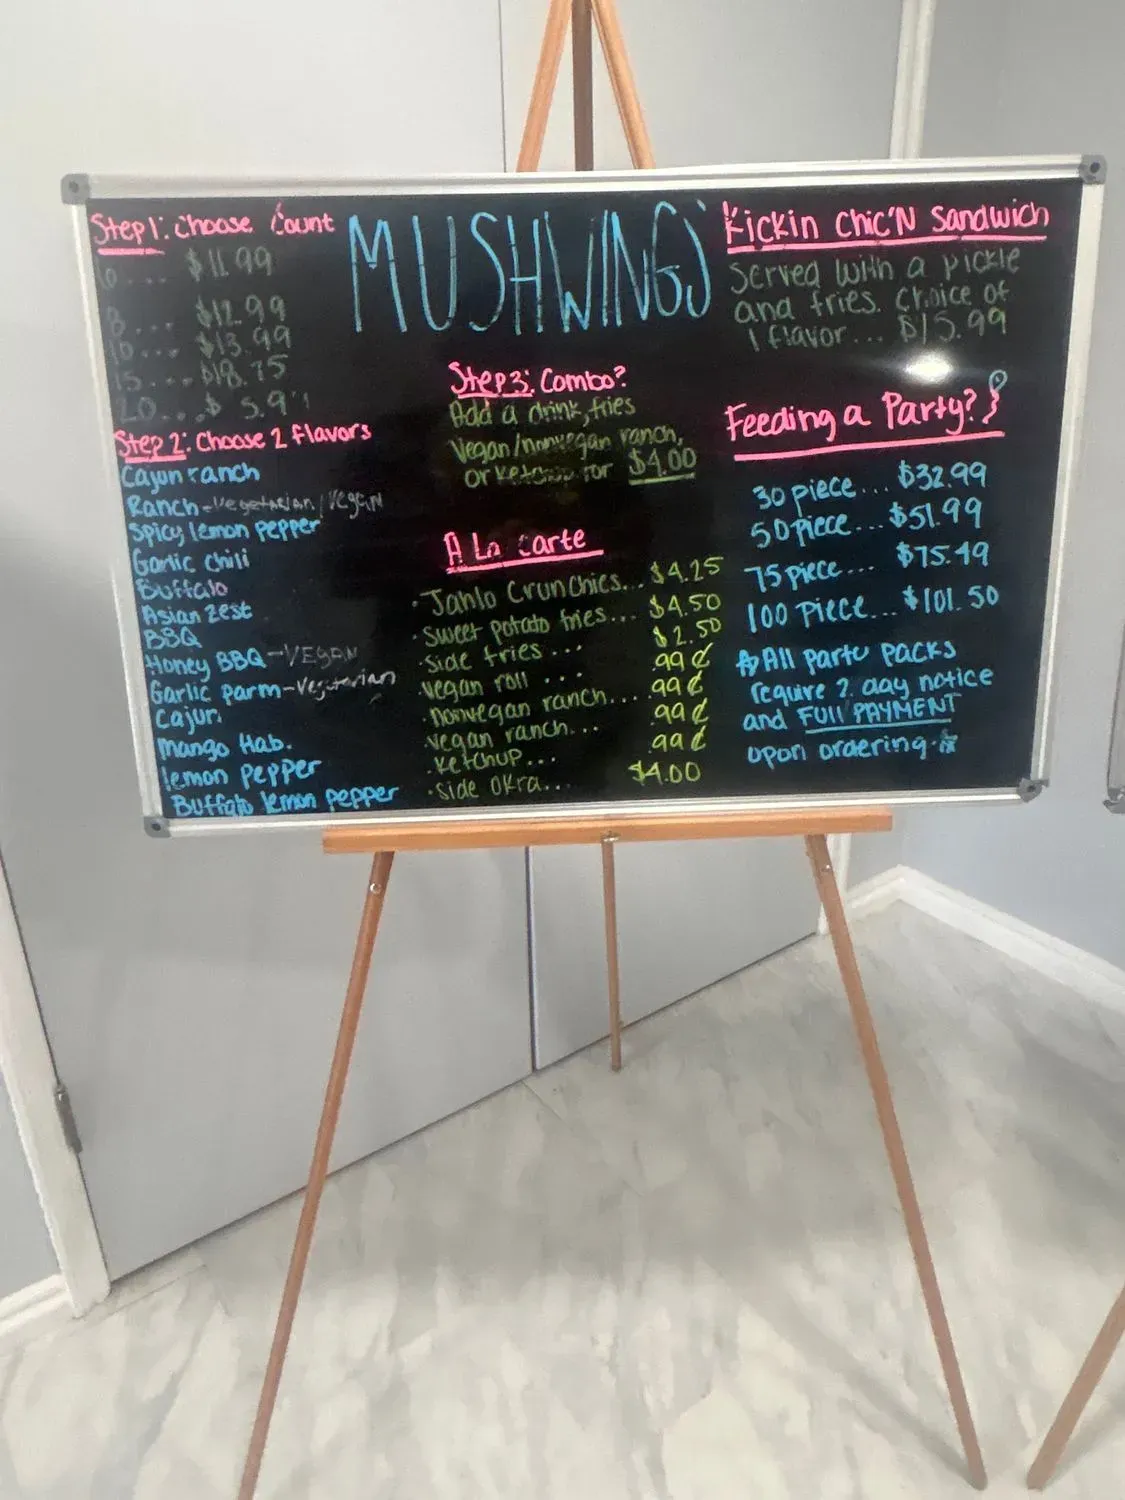 Step 1: Choose Count
6.... $11.99
8... $12.99
10... $13.99
15... $18.75
20...$ 5.9
Step 2: Choose 2 flavors
Cajun ranch
Ranch - vegetarian/VEGAN
Spicy lemon pepper
Garlic chili
Buffalo
Asian zest
BBQ
Honey BBQ - VEGAN
Garlic parm - Vegetarian
Cajun
Mango Hab.
lemon pepper
Buffalo lemon pepper
MUSHWINGS
Step 3: Combo?
Add a drink, fries
Vegan/nonvegan ranch,
or ketchup for $4.00
A La Carte
· Janlo Crunchies... $4.25
· sweet potato fries... $4.50
· side fries ... $2.50
· vegan roll ... .99¢
· nonvegan ranch.... .99¢
· vegan ranch... .99¢
· ketchup... .99¢
· side okra... $4.00
Kickin Chic'N Sandwich
Served with a pickle
and fries. Choice of
1 flavor... $15.99
Feeding a Party?
30 piece... $32.99
50 piece... $51.99
75 piece... $75.49
100 Piece... $101.50
All party packs
require 2 day notice
and FUll PAYMENT
upon ordering.